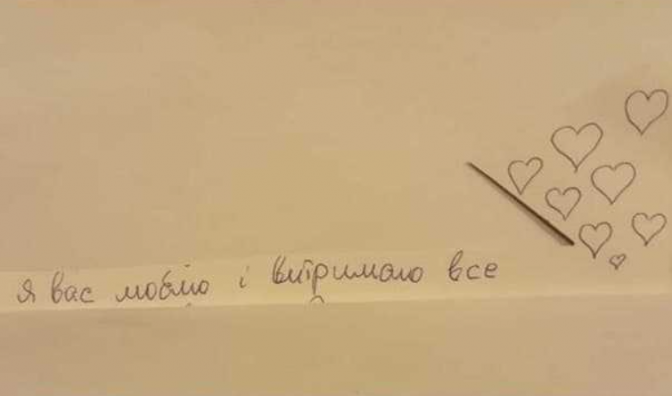 я вас люблю і витримаю все